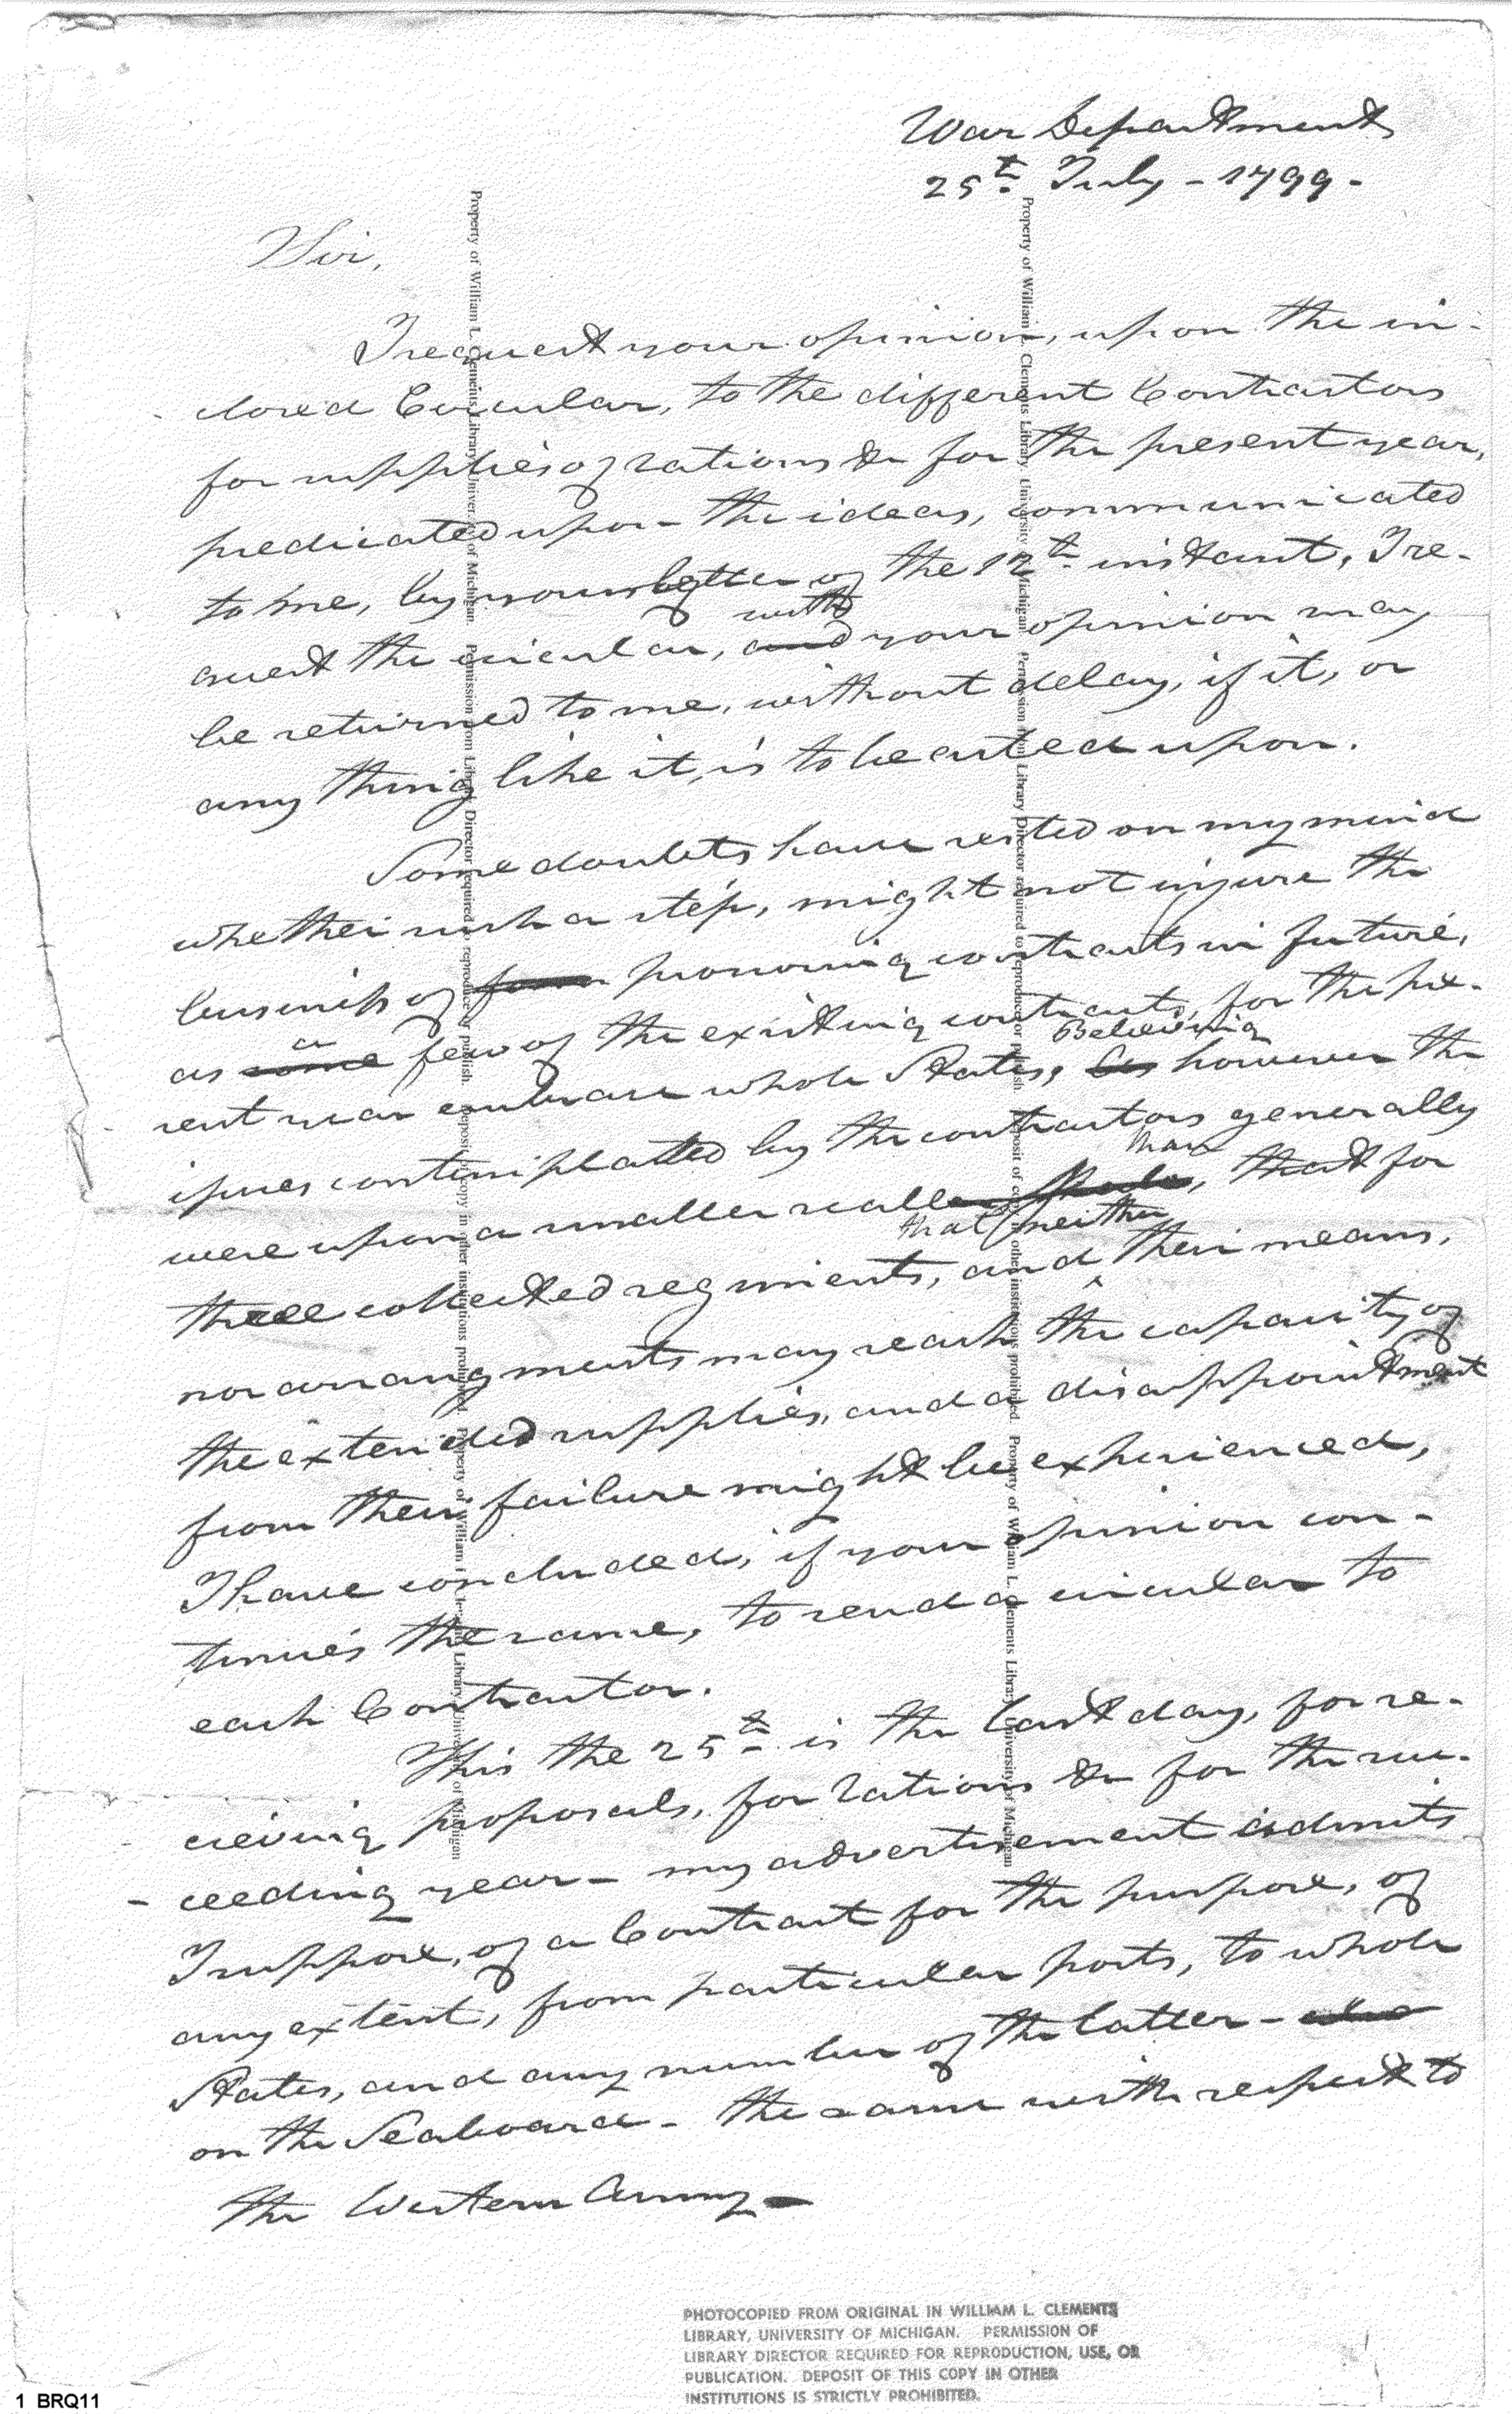 War Department
25th July - 1799 -
Sir,
I request your opinion, upon the in-
closed Circular, to the different Contractors
for supplies of rations &c for the present year,
predicated upon the ideas, communicated
to me, by your letter of the 12th instant, I re-
with
quest the circular, and your opinion may
be returned to me, without delay, if it, or
any thing like it, is to be acted upon.
Some doubts have rested on my mind
whether such a step, might not injure the
business of form procuring contracts in future,
a
as some few of the existing contracts, for the pre-
Believing
sent year embrace whole States, as however the
issues contemplated by the contractors generally
than
were upon a smaller scale, that for
that neither
three collected regiments, and their means,
nor arrangments may reach the capacity of
the extended supplies, and a disappointment
from their failure might be experienced,
I have concluded, if your opinion con-
tinues the same, to send a circular to
each Contractor.
This the 25th is the last day, for re-
cieving proposals, for rations &c for the suc-
ceeding year - my advertisement admits
I suppose, of a Contract for the purpose, of
any extent, from particular posts, to whole
States, and any number of the latter -
on the Seaboard - the same with respect to
the Western Army -
Property of William L. Clements Library University of Michigan. Permission from Library Director required to reproduce or publish. Deposit of copy in other institutions prohibited. Property of William L. Clements Library University of Michigan
Property of William L. Clements Library University of Michigan. Permission from Library Director required to reproduce or publish. Deposit of copy in other institutions prohibited. Property of William L. Clements Library University of Michigan
PHOTOCOPIED FROM ORIGINAL IN WILLIAM L. CLEMENTS
LIBRARY, UNIVERSITY OF MICHIGAN. PERMISSION OF
LIBRARY DIRECTOR REQUIRED FOR REPRODUCTION, USE, OR
PUBLICATION. DEPOSIT OF THIS COPY IN OTHER
INSTITUTIONS IS STRICTLY PROHIBITED.
1 BRQ11